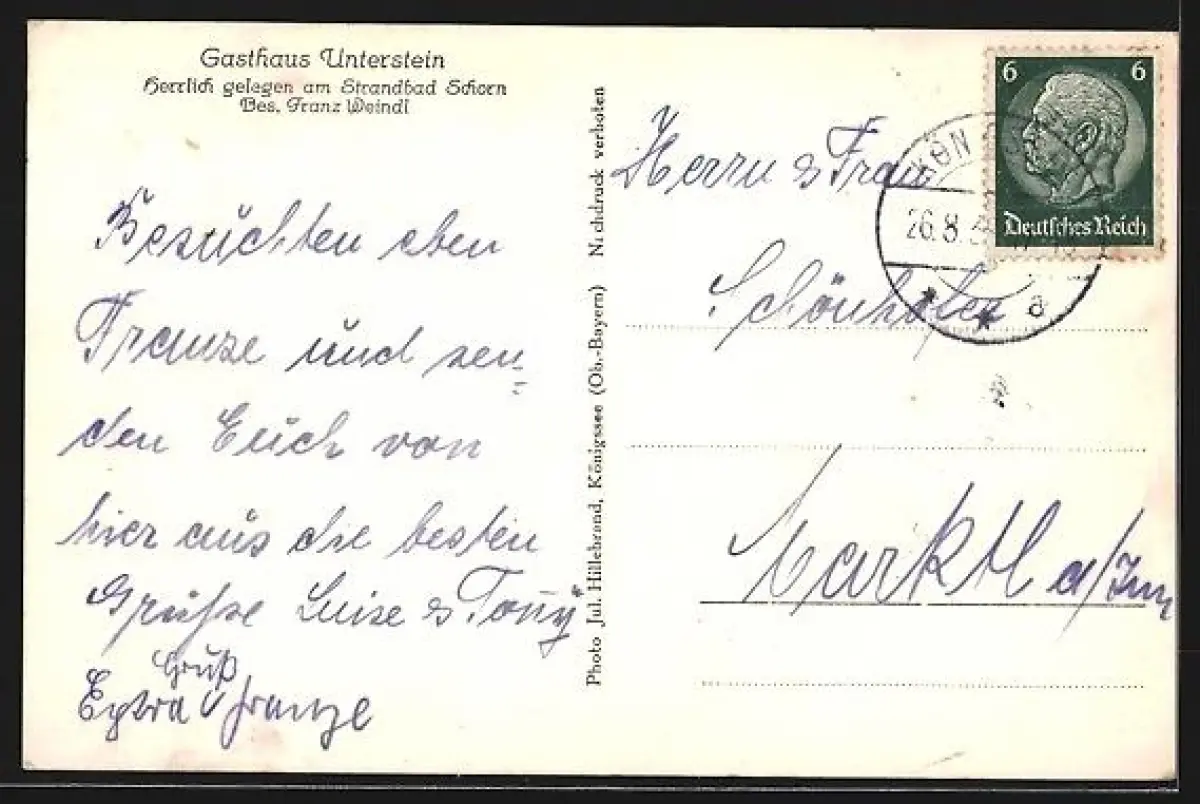 Gasthaus Unterstein
Herrlich gelegen am Strandbad Schorn
Bes. Franz Weindl
Besuchten eben
Franze und sen=
den Euch von
hier aus die besten
Grüße Luise & Tony
Gruß
Extra v Franze
Photo Jul. Hillebrand, Königssee (Ob.-Bayern) Nachdruck verboten
6 6
Deutsches Reich
KÖN
26.8.3
a
Herrn & Frau
Schönhofer
Marktl a/Inn